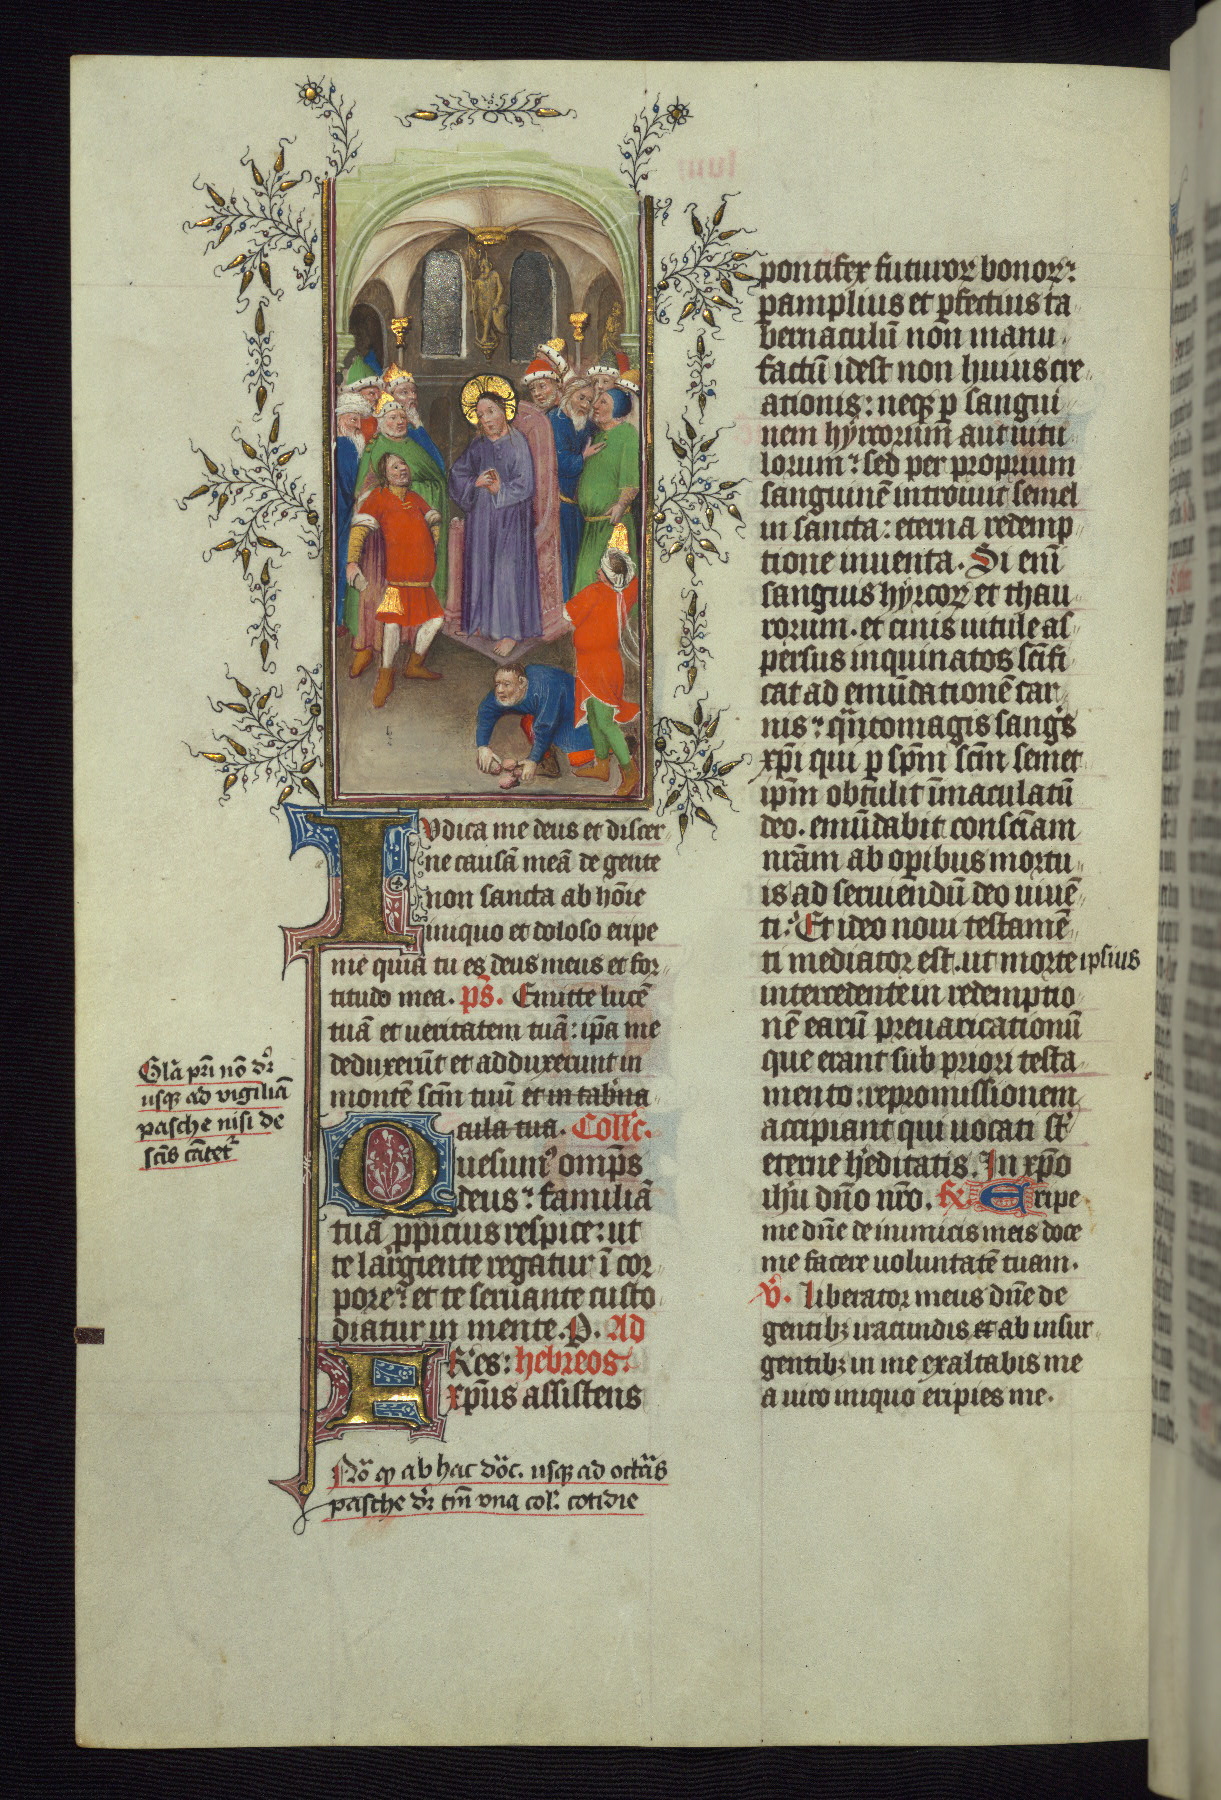 Iudica me deus et discer
ne causā meā de gente
non sancta ab hōie
iniquo et doloso eripe
me quia tu es deus meus et for
titudo mea. p̄s. Emitte lucē
tuā et veritatem tuā: ip̄a me
deduxerūt et adduxerunt in
montē sc̄m tuū et in tab̄na
cula tua. Coll̄c.
Quesum᷒ omp̄s
deus: familiā
tuā ppicius respice: ut
te largiente regatur ī cor
pore: et te seruante custo
diatur in mente. P. Ad
Fr̄es: hebreos:
xp̄us assistens
Gl̄a pr̄i nō dr̄
usq ad vigiliā
pasche nisi de
sc̄is cātet᷑
Nō q ab hac dōc. usq ad octa᷑s
pasche dr̄ tm̄ vna col̄. cotidie
pontifex futuroꝝ bonoꝝ:
p amplius et pfectius ta
bernaculū non manu
factū idest non huius cre
ationis: neq p sangui
nem hyrcorum aut uitu
lorum: sed per proprium
sanguinē introiuit semel
in sancta: eterna redemp
tione inuenta. Si enī
sanguis hyrcoꝝ et thau
rorum. et cinis uitule as
persus inquinatos sc̄ifi
cat ad emūdationē car
nis: quātomagis sang᷒s
xp̄i qui p sp̄m sc̄m semet
ip̄m obtulit īmaculatū
deo. emūdabit consc̄iam
nr̄am ab opibus mortu
is ad seruiendū deo uiuē
ti: Et ideo noui testamē
ti mediator est. ut morte ipsius
intercedente in redemptio
nē earū preuaricationū
que erant sub priori testa
mento: repromissionem
accipiant qui uocati st̄
eterne h̄editatis. In xp̄o
ih̄u dn̄o nr̄o. Gr̄. Eripe
me dn̄e de inimicis meis doce
me facere uoluntatē tuam.
V̄. Liberator meus dn̄e de
gentibꝫ iracundis et ab insur
gentibꝫ in me exaltabis me
a uiro iniquo eripies me.